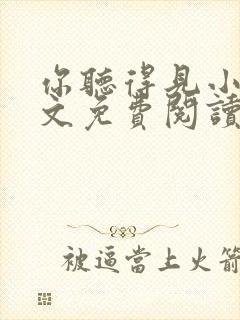 你聽得見小
文免費閱讀
被逼當上火箭